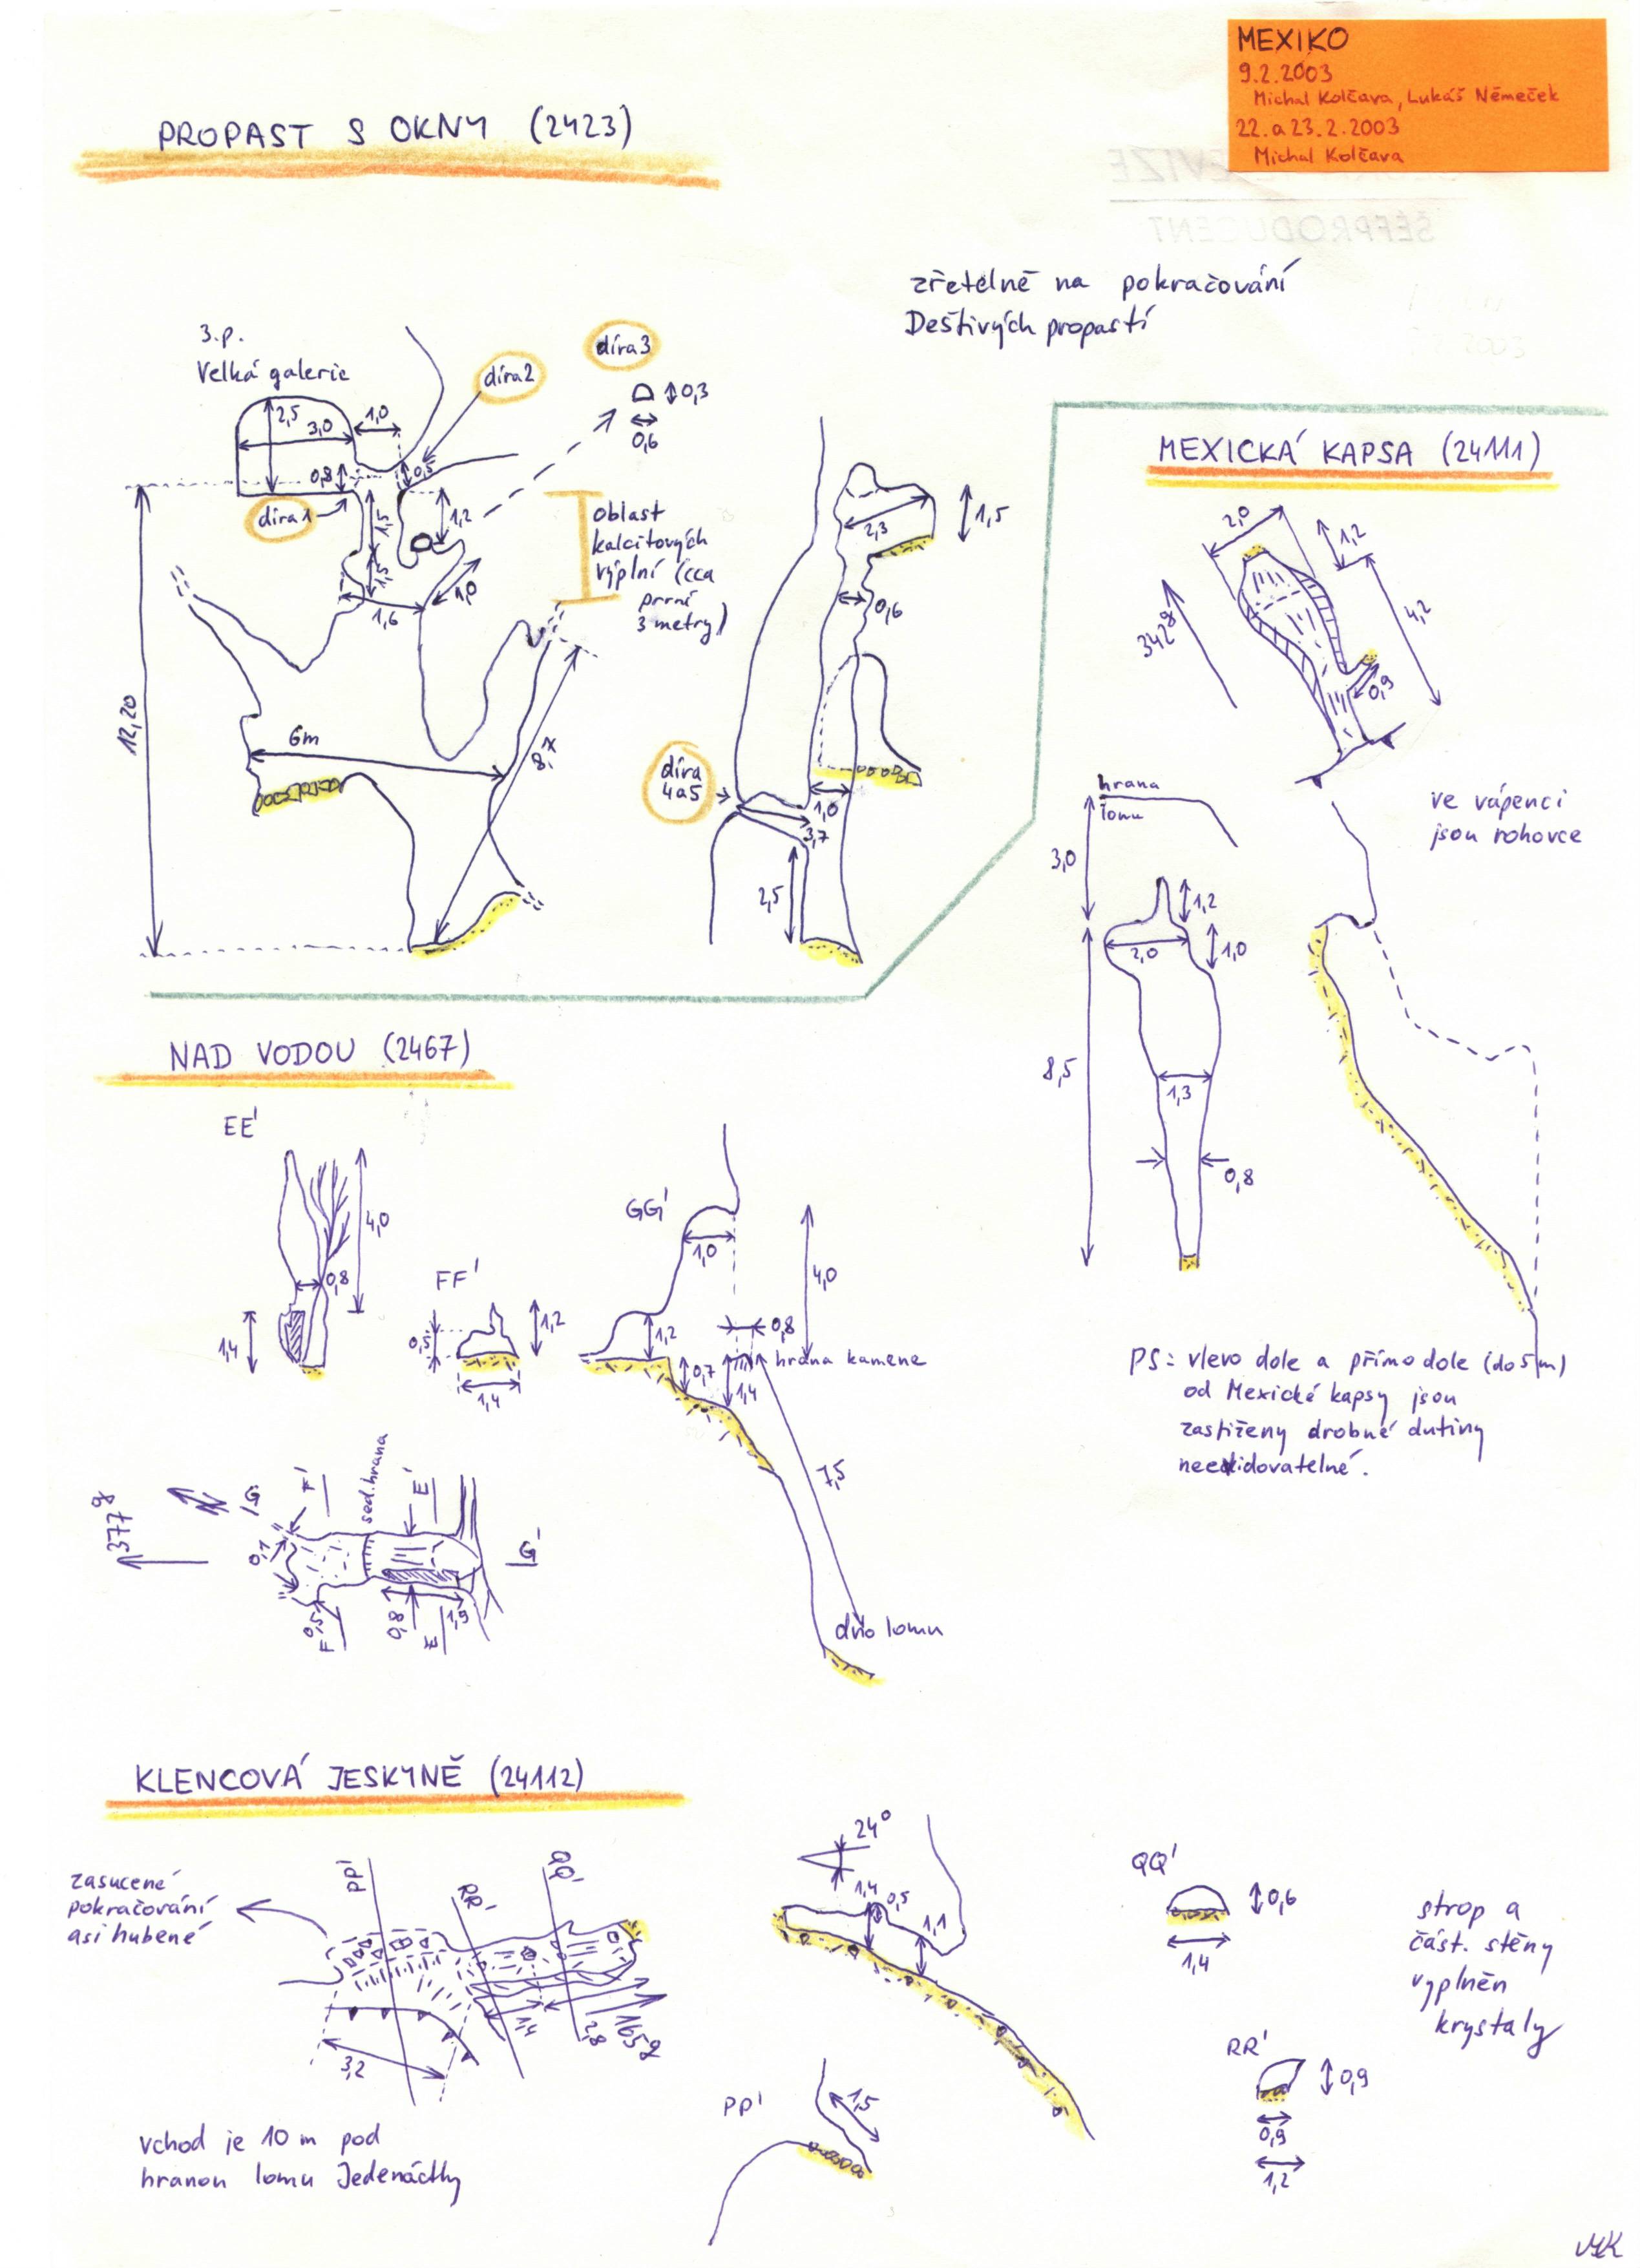 MEXIKO
9.2.2003
Michal Kolčava, Lukáš Němeček
22. a 23.2.2003
Michal Kolčava
PROPAST S OKNY (2423)
zřetelně na pokračování
Deštivých propastí
3.p.
Velká galerie
díra 2
díra 3
0,3
0,6
2,5
3,0
1,0
0,8
0,5
díra 1
1,5
1,2
1,5
1,6
1,0
oblast
kalcitových
výplní (cca
první
3 metry)
12,20
6m
2,3
1,5
0,6
díra
4a5
1,0
3,7
2,5
MEXICKÁ KAPSA (24111)
2,0
1,2
4,2
342g
0,9
hrana
lomu
3,0
ve vápenci
jsou rohovce
1,2
2,0
1,0
8,5
1,3
0,8
PS: vlevo dole a přímo dole (do 5 m)
od Mexické kapsy jsou
zastiženy drobné dutiny
neevidovatelné.
NAD VODOU (2467)
EE'
4,0
0,8
1,4
FF'
0,5
1,2
1,4
GG'
1,0
4,0
1,2
0,8
hrana kamene
0,7
1,4
7,5
dno lomu
377g
G
F'
sed. hrana
E'
G'
0,5
F
0,8
E
1,9
KLENCOVÁ JESKYNĚ (24112)
zasucené
pokračování
asi hubené
PP'
RR'
QQ'
3,2
1,4
2,8
165g
vchod je 10 m pod
hranou lomu Jedenáctky
24°
1,4
0,5
1,1
PP'
1,5
QQ'
0,6
1,4
strop a
část. stěny
vyplněn
krystaly
RR'
0,9
0,9
1,2
MK